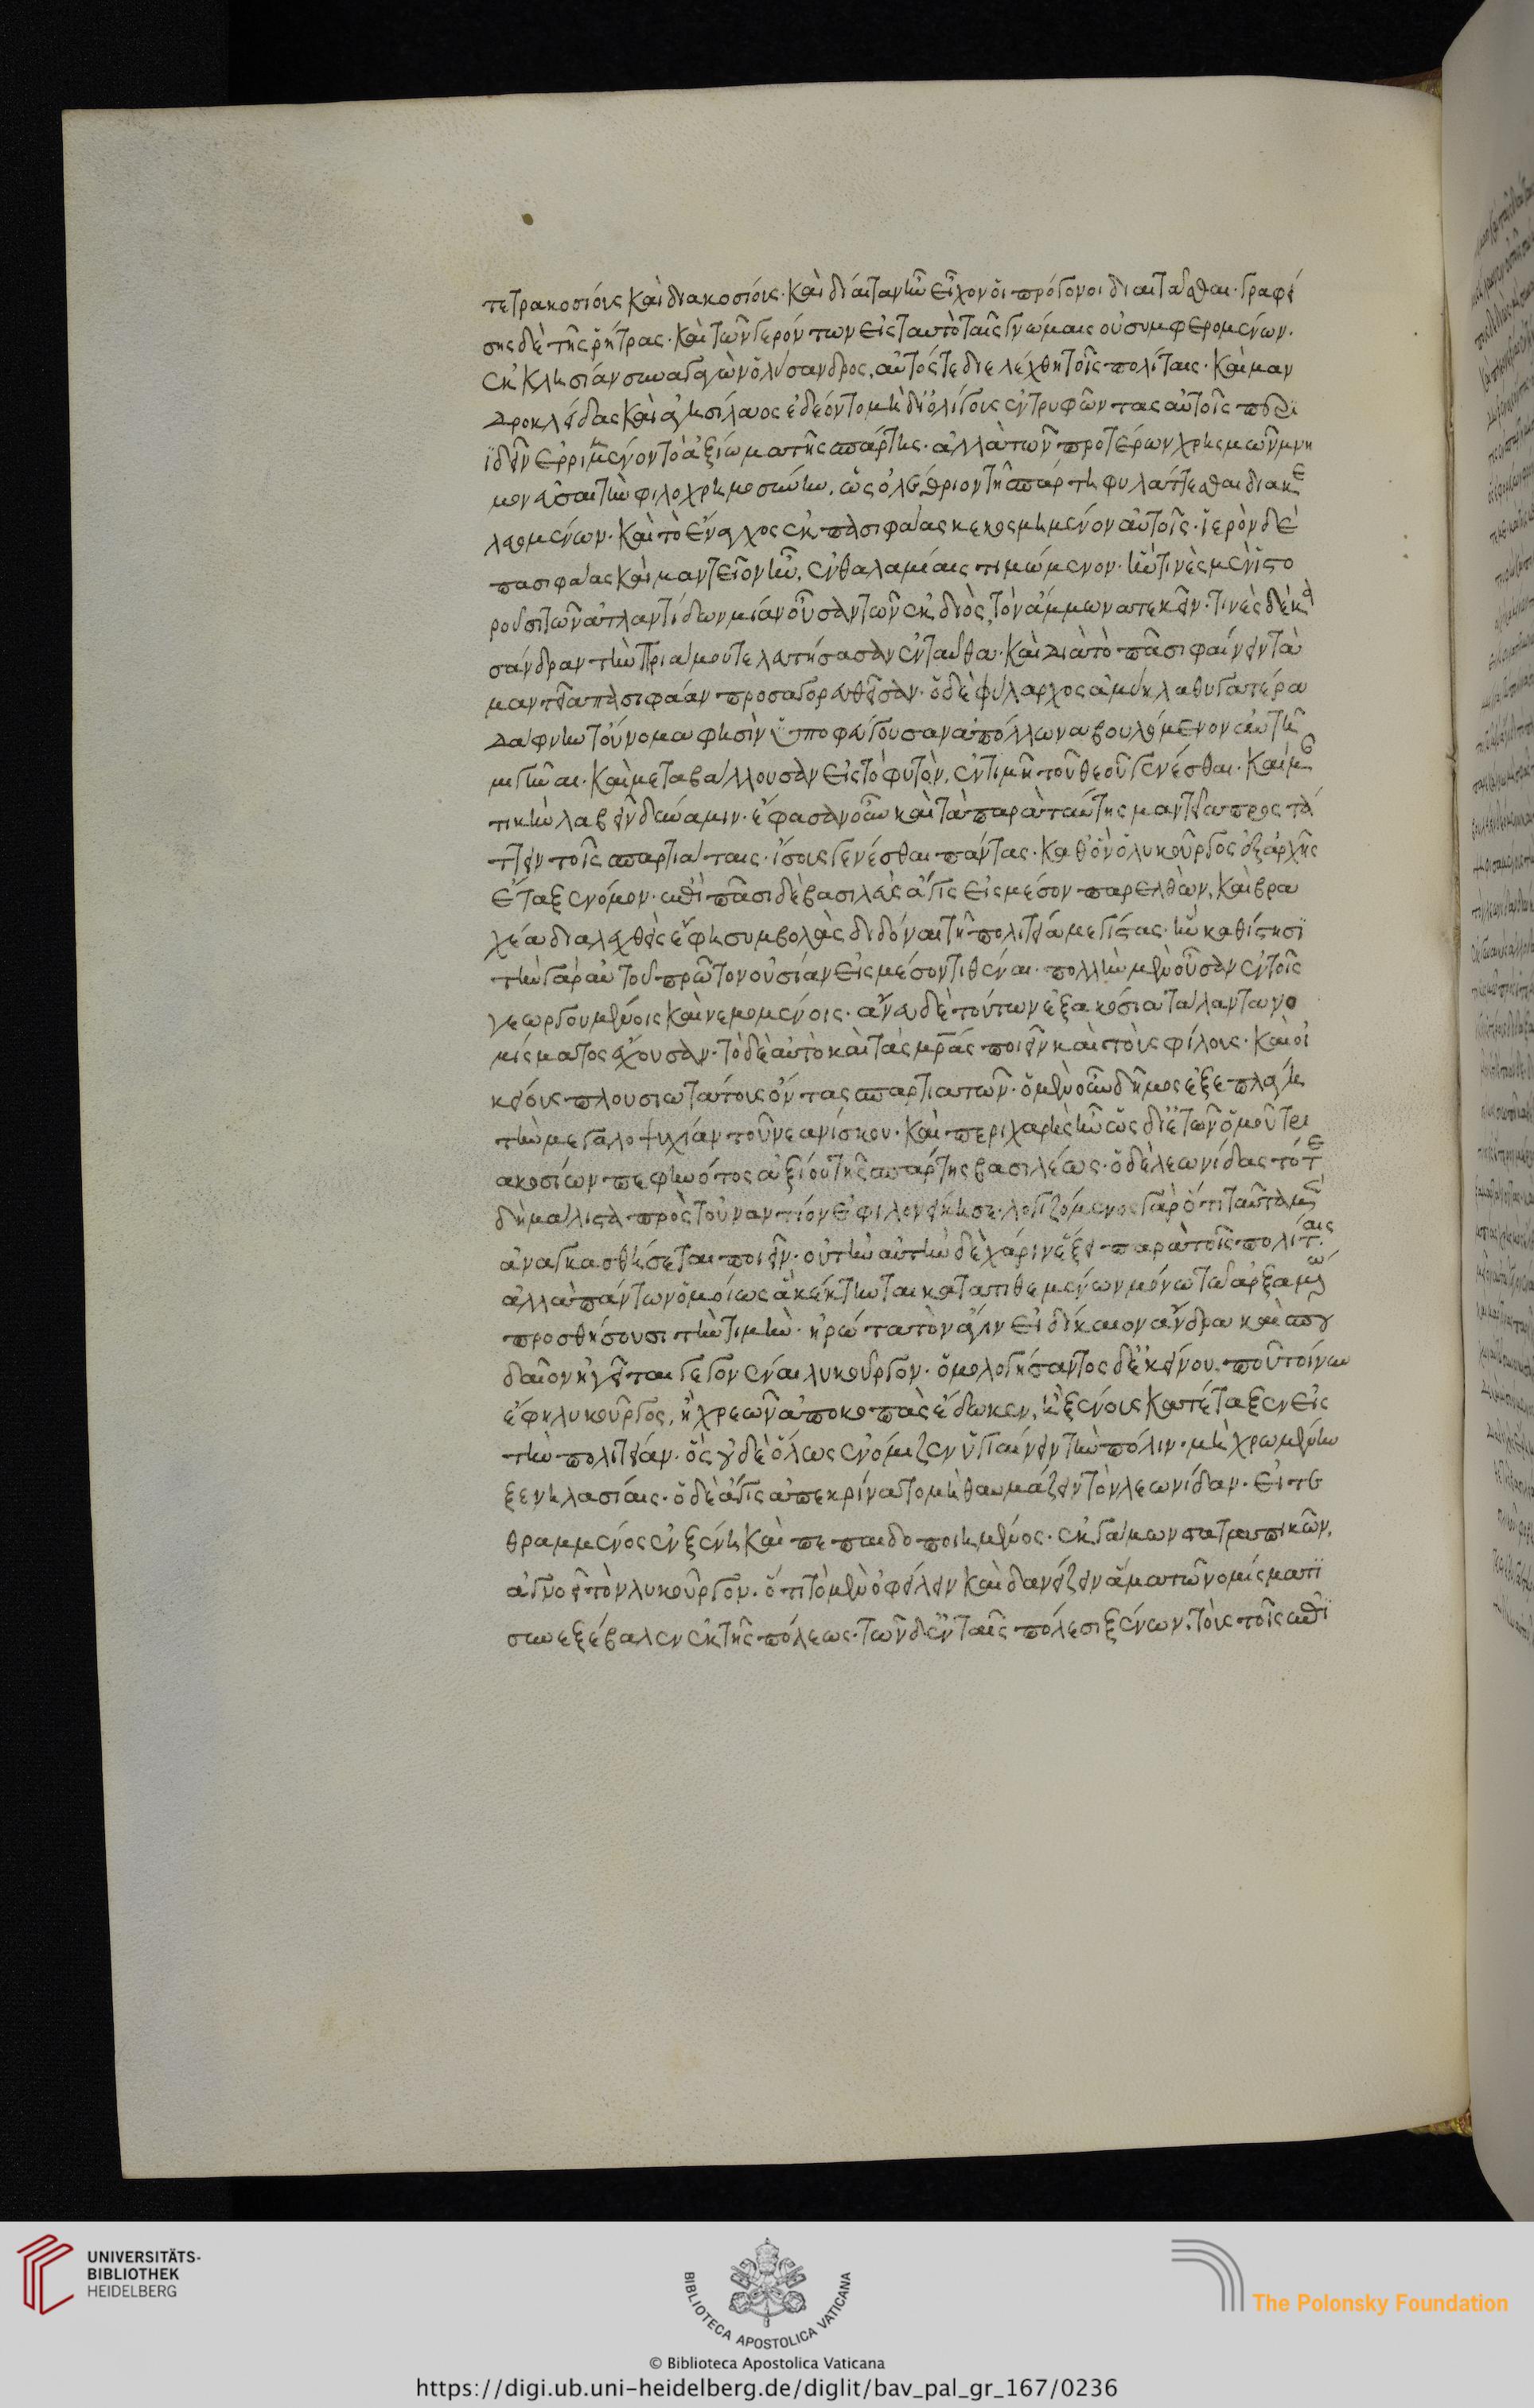 τετρακοσίους καὶ διακοσίους· καὶ δίαιταν ἣν εἶχον οἱ πρόγονοι διαιτᾶσθαι· γραφεί
σης δὲ τῆς ῥήτρας· καὶ τῶν γερόντων εἰς ταυτὸ ταῖς γνώμαις οὐ συμφερομένων·
ἐκκλησίαν συναγαγὼν ὁ λύσανδρος, αὐτός τε διελέχθη τοῖς πολίταις· καὶ μαν
δροκλείδας καὶ ἀγησίλαος ἐδέοντο μὴ δι' ὀλίγους ἐντρυφῶντας αὐτοῖς περι
ϊδεῖν ἐρριμμένον τὸ ἀξίωμα τῆς σπάρτης· ἀλλὰ τῶν προτέρων χρησμῶν μνη
μονεῦσαι τὴν φιλοχρημοσύνην, ὡς ὀλέθριον τῆ σπάρτη φυλάττεσθαι διακε
λευομένων· καὶ τὸ ἔναγχος ἐκ πασιφάας κεκοσμημένον αὐτοῖς· ἱερὸν δὲ
πασιφάας καὶ μαντεῖον ἦν, ἐν θαλαμίαις τιμώμενον· ἥν τινὲς μὲν ἱστο
ροῦσι τῶν ἀτλαντίδων μίαν οὖσαν τῶν ἐκ διὸς, τὸν ἄμμωνα τεκεῖν· τινὲς δὲ κα
σάνδραν τὴν πριάμου τελευτήσασαν ἐνταῦθα· καὶ διὰ τὸ πᾶσι φαίνειν τὰ
μαντεῖα πασιφάαν προσαγορευθεῖσαν· ὁ δὲ φύλαρχος ἀμύκλα θυγατέρα
δάφνην τοὔνομα φησὶν ὑποφεύγουσαν ἀπόλλωνα βουλόμενον αὐτῆ
μιγῆναι· καὶ μεταβάλλουσαν εἰς τὸ φυτὸν, ἐν τιμῆ τοῦ θεοῦ γενέσθαι· καὶ μαν
τικὴν λαβεῖν δύναμιν· ἔφασαν οὖν καὶ τὰ παρὰ ταύτης μαντεῖα προστάτ
τειν τοῖς σπαρτιάταις· ἴσους γενέσθαι πάντας· καθ' ὃν ὁ λυκοῦργος ἐξ ἀρχῆς
ἔταξε νόμον· ἐπὶ πᾶσι δὲ βασιλεὺς ἆγις εἰς μέσον παρελθὼν, καὶ βρα
χέα διαλεχθεὶς ἔφη συμβολὰς διδόναι τῆ πολιτεία μεγίστας· ἣν καθίστησι
τὴν γὰρ αὑτοῦ πρῶτον οὐσίαν εἰς μέσον τιθέναι· πολλὴν μὲν οὖσαν ἐν τοῖς
γεωργουμένοις καὶ νεμομένοις· ἄνευ δὲ τούτων ἑξακόσια τάλαντα νο
μίσματος ἔχουσαν· τὸ δὲ αὐτὸ καὶ τὰς μρας ποιεῖν καὶ τοὺς φίλους· καὶ οἰ
κείους πλουσιωτάτους ὄντας σπαρτιατῶν· ὁ μὲν οὖν δῆμος ἐξεπλάγη
τὴν μεγαλοψυχίαν τοῦ νεανίσκου· καὶ περιχαρὴς ἦν ὡς δι' ἐτῶν ὁμοῦ τρι
ακοσίων πεφηνότος ἀξίου τῆς σπάρτης βασιλέως· ὁ δὲ λεωνίδας τότε
δὴ μάλιστα πρὸς τοὐναντίον ἐφιλονείκησε· λογιζόμενος γὰρ ὅτι ταῦτα μὲν
ἀναγκασθήσεται ποιεῖν· οὐ τὴν αὐτὴν δὲ χάριν ἕξει παρὰ τοῖς πολίταις·
ἀλλὰ πάντων ὁμοίως ἃ κέκτηται κατατιθεμένων μόνω τῶ ἀρξαμένω
προσθήσουσι τὴν τιμὴν· ἠρώτα τὸν ἆγιν εἰ δίκαιον ἄνδρα καὶ σπου
δαῖον ἡγεῖται γεγονέναι λυκοῦργον· ὁμολογήσαντος δ' ἐκείνου, ποῦ τοίνυν
ἔφη λυκοῦργος, ἢ χρεῶν ἀποκοπὰς ἔδωκεν, ἢ ξένους κατέταξεν εἰς
τὴν πολιτείαν· ὃς οὐδὲ ὅλως ἐνόμιζεν ὑγιαίνειν τὴν πόλιν· μὴ χρωμένην
ξενηλασίαις· ὁ δὲ ἆγις ἀπεκρίνατο μὴ θαυμάζειν τὸν λεωνίδαν· εἰ τε
θραμμένος ἐν ξένη καὶ πεπαιδοποιημένος· ἐκ γάμων σατραπικῶν,
ἀγνοεῖ τὸν λυκοῦργον· ὅτι τὸ μὲν ὀφείλειν καὶ δανείζειν ἅμα τῶ νομίσματι
συνεξέβαλεν ἐκ τῆς πόλεως· τῶν δ' ἐν ταῖς πόλεσι ξένων, τοὺς τοῖς ἐπι
UNIVERSITÄTS-
BIBLIOTHEK
HEIDELBERG
BIBLIOTECA APOSTOLICA VATICANA
© Biblioteca Apostolica Vaticana
The Polonsky Foundation
https://digi.ub.uni-heidelberg.de/diglit/bav_pal_gr_167/0236